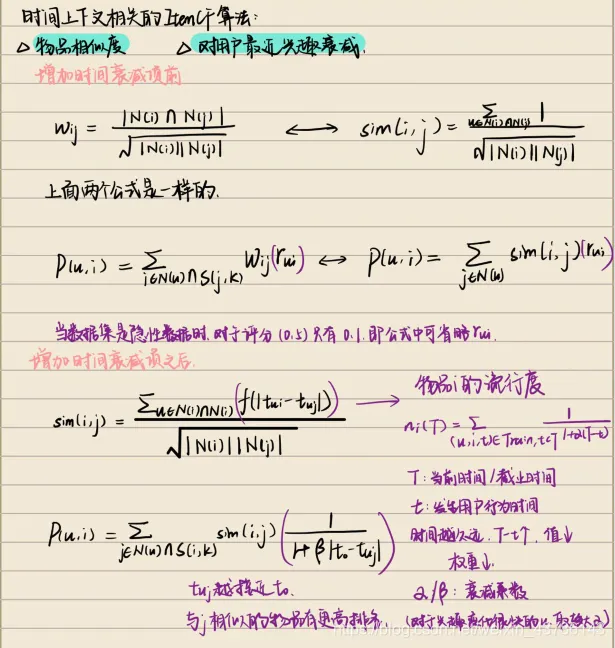 时间上下文相关的ItemCF算法:
△ 物品相似度 △ 对用户最近兴趣衰减.
增加时间衰减项前
Wij = |N(i) ∩ N(j)| / √|N(i)||N(j)| ⟷ sim(i,j) = Σu∈N(i)∩N(j) 1 / √|N(i)||N(j)|
上面两个公式是一样的.
P(u,i) = Σ i∈N(u)∩S(j,k) Wij(rui) ⟷ P(u,i) = Σ j∈N(u) sim(i,j)(rui)
当数据集是隐性数据时. 对于评分(0,5)只有0.1. 即公式中可省略rui.
增加时间衰减项之后.
sim(i,j) = Σu∈N(i)∩N(j)(f(|tui-tuj|)) / √|N(i)||N(j)| →
物品i的流行度
ni(T) = Σ (u,i,t)∈Train,t<T 1 / 1+α(T-t)
T:当前时间/截止时间
t:发生用户行为时间
时间越久远, T-t↑, 值↓
权重↓.
P(u,i) = Σ j∈N(u)∩S(i,k) sim(i,j) (1 / 1+β|t0-tuj|)
α/β: 衰减系数
tuj越接近t0.
与j相似的物品有更高排名.